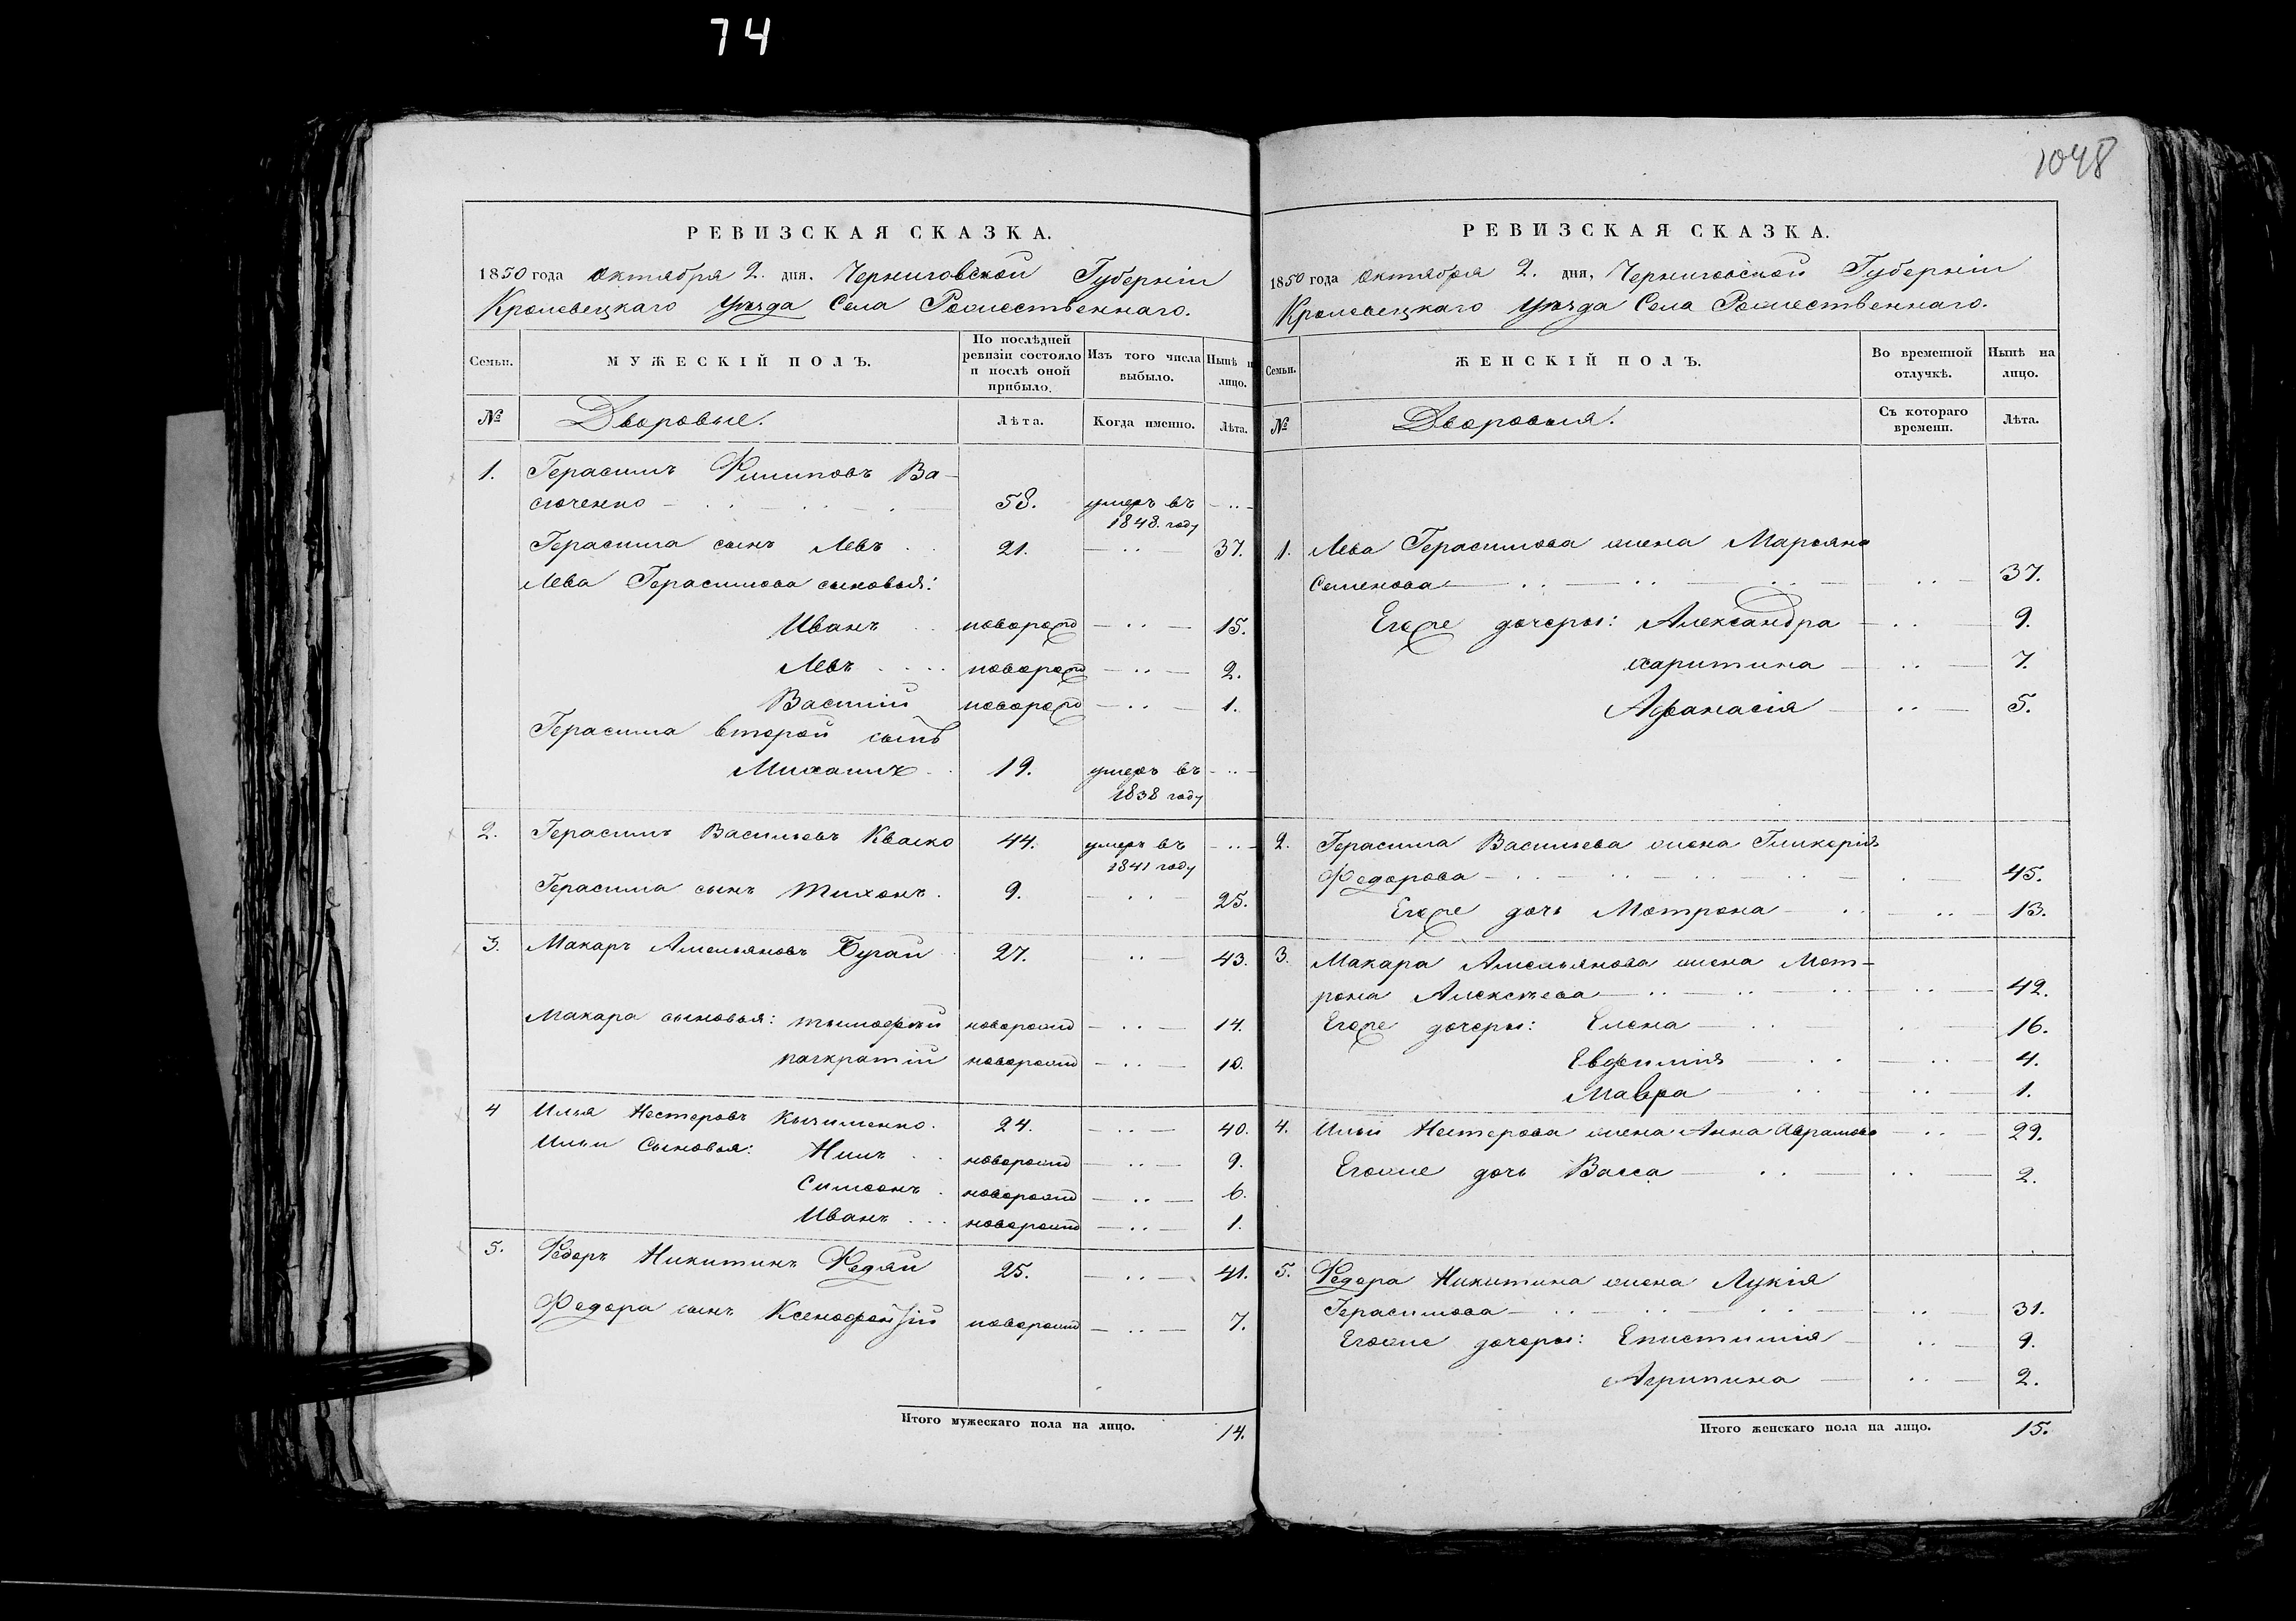 74
1048
РЕВИЗСКАЯ СКАЗКА.
1850 года Октября 2. дня. Черниговской Губерніи
Кролевецкаго Уѣзда Села Рожественнаго.
Семьи.
МУЖЕСКІЙ ПОЛЪ.
По послѣдней ревизіи состояло и послѣ оной прибыло.
Изъ того числа выбыло.
Нынѣ н лицо.
№
Дворовые.
Лѣта.
Когда именно.
Лѣта.
1. Герасимъ Филиповъ Ва-
сюченко 58. умеръ въ
1848. году
Герасима сынъ Левъ 21. 37.
Лева Герасимова сыновья:
Иванъ новорожд 15.
Левъ новорожд 2.
Василій новорожд 1.
Герасима второй сынъ
Михаилъ 19. умеръ въ
1838 году
2. Герасимъ Васильевъ Кваско 44. умеръ въ
1841 году
Герасима сынъ Тихонъ. 9. 25.
3. Макаръ Амельяновъ Бугай 27. 43.
Макара сыновья: тымофей новорожд 14.
панкратій новорожд 10.
4 Илья Нестеровъ 24. 40.
Ильи Сыновья: Нилъ новорожд 9.
Симеонъ новорожд 6.
Иванъ новорожд 1.
5. Федоръ Никитинъ Федяй 25. 41.
Федора сынъ Ксенофонтій новорожд 7.
Итого мужескаго пола на лицо. 14.
РЕВИЗСКАЯ СКАЗКА.
1850 года Октября 2. дня, Черниговской Губерніи
Кролевецкаго Уѣзда Села Рожественнаго.
Семьи.
ЖЕНСКІЙ ПОЛЪ.
Во временной отлучкѣ.
Нынѣ на лицо.
№
Дворовыя.
Съ котораго времени.
Лѣта.
1. Лева Герасимова жена Марьяна
Семенова 37.
Егоже дочеры: Александра 9.
харитина 7.
Афанасія 5.
2. Герасима Васильева жена Гликерія
Федорова 45.
Егоже дочь Мотрона 13.
3. Макара Амельянова жена Мот-
рона Алексѣева 42.
Егоже дочеры: Елена 16.
Евфимія 4.
Мавра 1.
4. Ильи Нестерова жена Анна Аврамова 29.
Егоже дочь Васса 2.
5. Федора Никитина жена Лукія
Герасимова 31.
Егоже дочеры: Епистимія 9.
Агрипина 2.
Итого женскаго пола на лицо. 15.